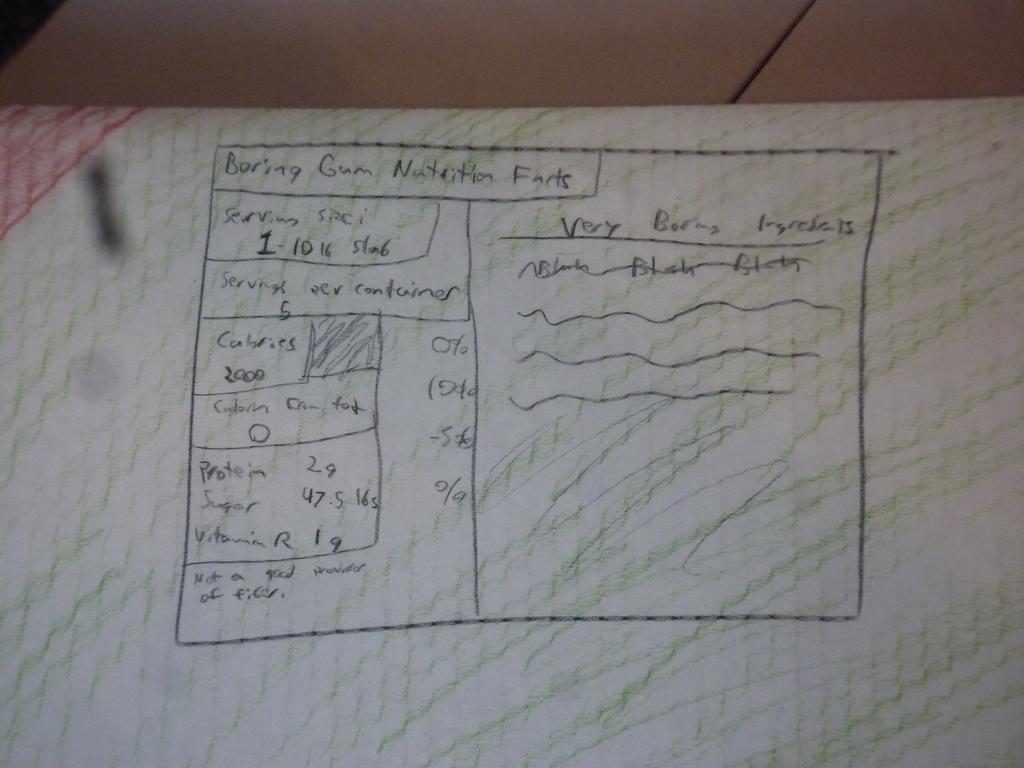 Boring Gum Nutrition Facts
Serving size:
1-10 lb slab
Servings per container
5
Calories
2000
Calories from fat
0
Protein 2g
Sugar 47.5 lbs
Vitamin R 1g
Not a good provider
of fiber.
0%
10%
-5%
%
Very Boring Ingredients
Blah Blah Blah